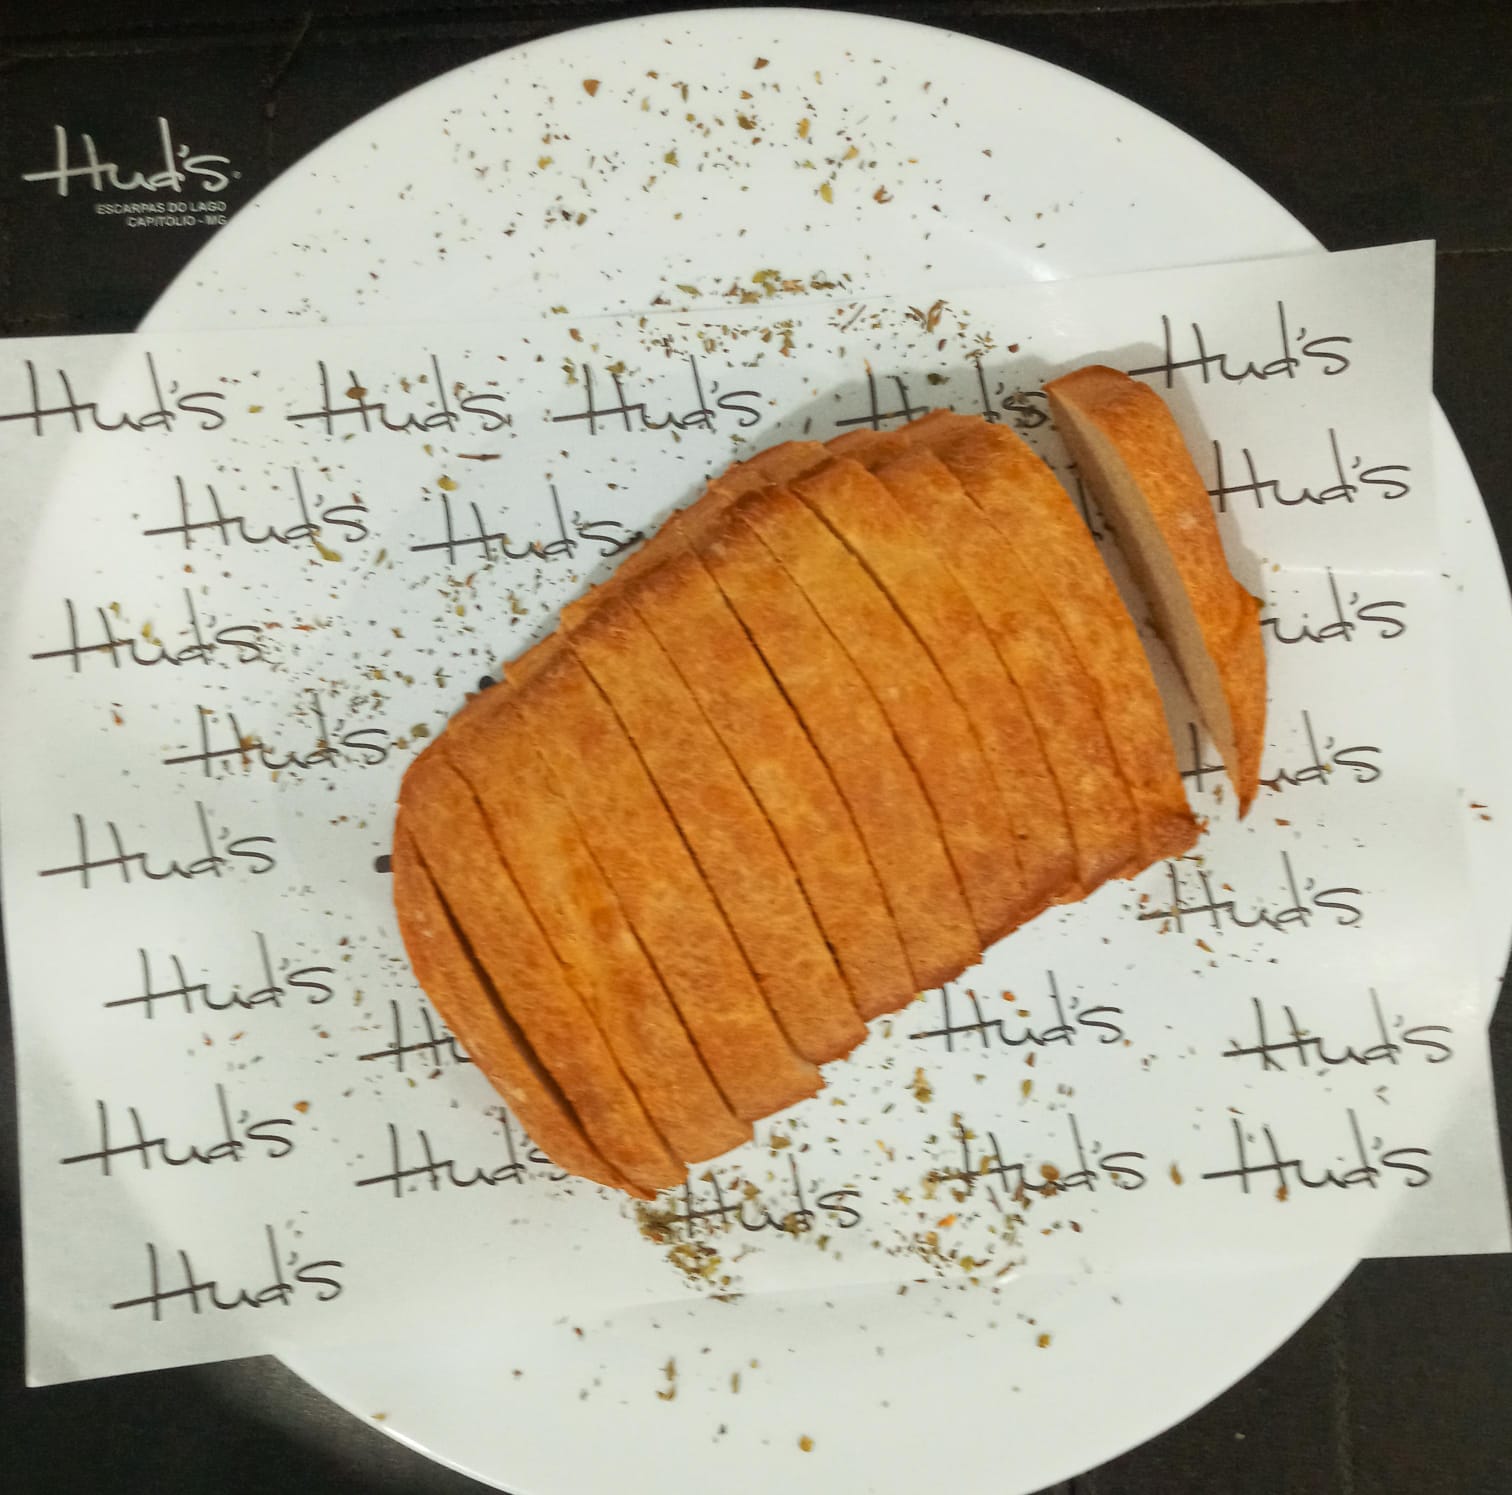 Hud's
ESCARPAS DO LAGO
CAPITÓLIO - MG
Hud's
Hud's Hud's Hud's
Hud's
Hud's Hud's
Hud's
Hud's
Hud's
Hud's
Hud's
Hud's
Hud's
Hud's Hud's
Hud's Hud's Hud's Hud's
Hud's
Hud's